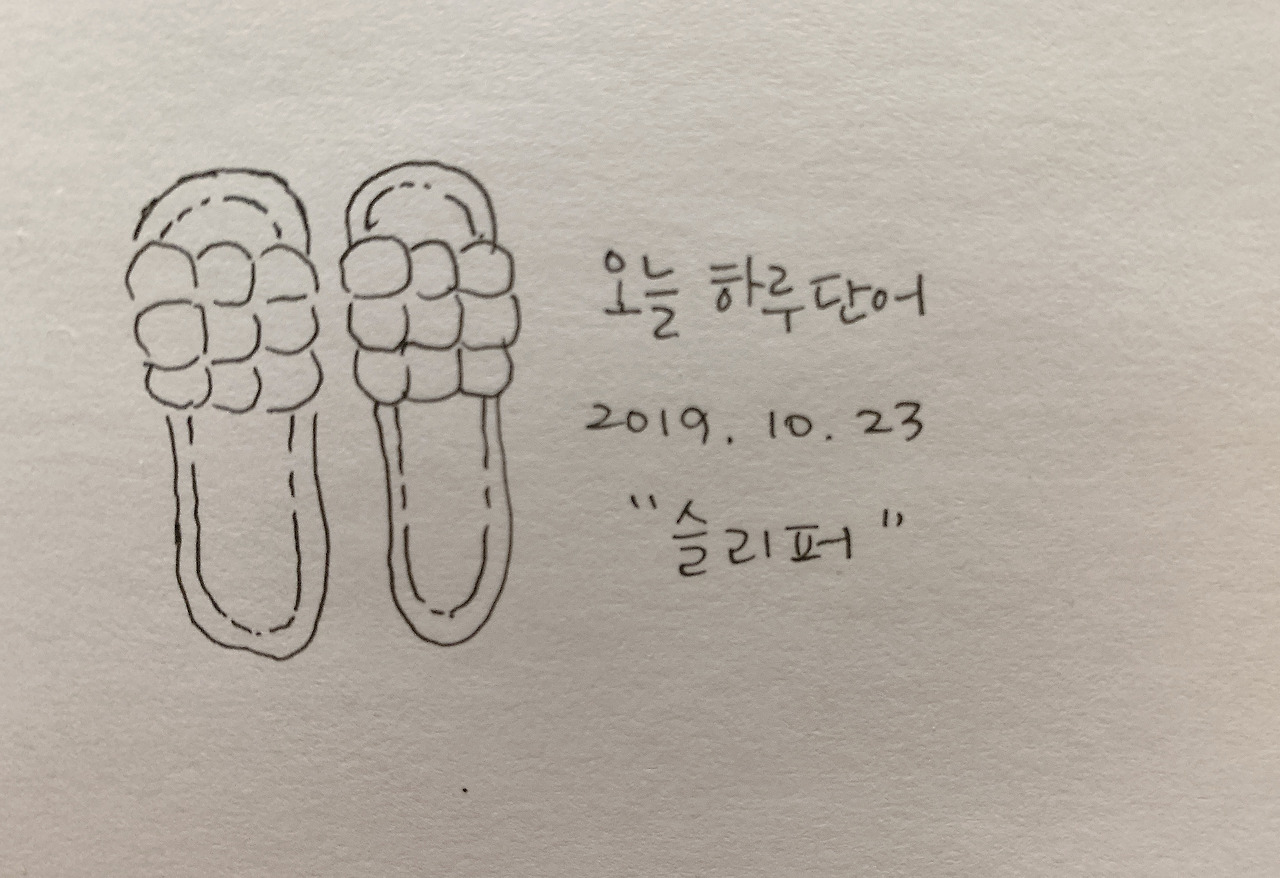 오늘 하루단어
2019. 10. 23
"슬리퍼"